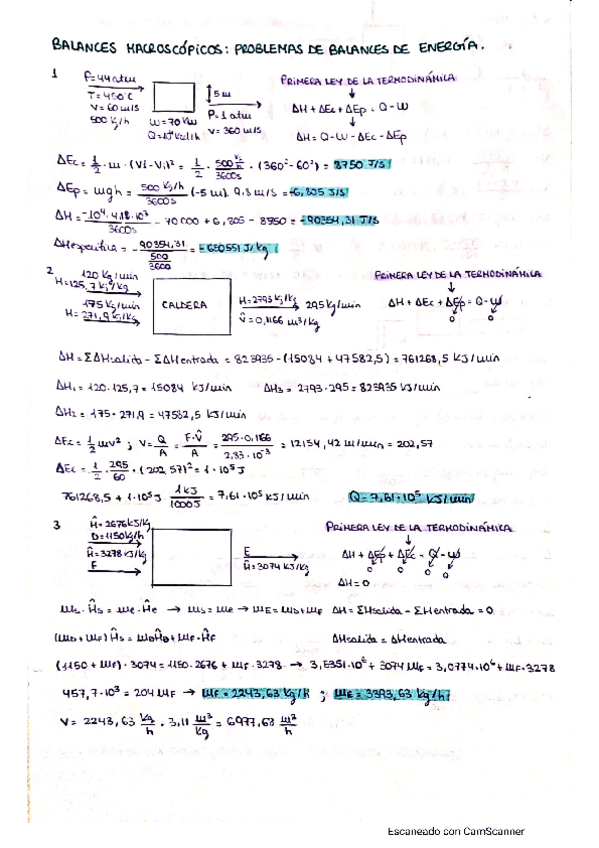 BALANCES MACROSCÓPICOS: PROBLEMAS DE BALANCES DE ENERGÍA.
1
P=44 atm
T=450°C
V=60 m/s
500 Kg/h
5m
W=70 KW
P=1 atm
V=360 m/s
PRIMERA LEY DE LA TERMODINÁMICA
↓
ΔH + ΔEc + ΔEp = Q - W
↓
ΔH = Q - W - ΔEc - ΔEp
ΔEc = 1/2 · m · (Vf - Vi)² = 1/2 · 500 Kg/3600s · (360² - 60²) = 8750 J/s
ΔEp = mgh = 500 Kg/h / 3600s (-5 m) 9,8 m/s = -6,805 J/s
ΔH = -10⁴ · 4,18 · 10³ / 3600s - 70 000 + 6,805 - 8750 = -90354,31 J/s
ΔHespecífica = - 90354,31 / (500/3600) = -650551 J/kg
2
120 Kg/min
H=125,7 kJ/kg
175 Kg/min
H=271,9 kJ/kg
CALDERA
H=2793 kJ/kg
V̂=0,1166 m³/kg
295 kg/min
PRIMERA LEY DE LA TERMODINÁMICA
↓
ΔH + ΔEc + ΔEp = Q - W
0 0
ΔH = ΣΔHsalida - ΣΔHentrada = 823935 - (15084 + 47582,5) = 761268,5 KJ/min
ΔH₁ = 120 · 125,7 = 15084 KJ/min ΔH₃ = 2793 · 295 = 823935 KJ/min
ΔH₂ = 175 · 271,9 = 47582,5 KJ/min
ΔEc = 1/2 mv² ; V = Q/A = F·V̂/A = 295·0,166 / 2,83·10⁻³ = 12154,42 m/min = 202,57
ΔEc = 1/2 · 295/60 · (202,57)² = 1·10⁵ J
761268,5 + 1·10⁵ J · 1KJ/1000J = 7,61·10⁵ KJ/min Q=7,61·10⁵ KJ/min
3
Ĥ=2676 KJ/Kg
D=1150 Kg/h
Ĥ=3278 KJ/Kg
F
E
Ĥ=3074 KJ/Kg
PRIMERA LEY DE LA TERMODINÁMICA
↓
ΔH + ΔEp + ΔEc = Q - W
0 0 0 0
ΔH=0
ms · Ĥs = me · Ĥe → ms = me → mE = mD + mF ΔH = ΣHsalida - ΣHentrada = 0
(mD + mF) Ĥs = mDĤD + mF·ĤF ΔHsalida = ΔHentrada
(1150 + mF) · 3074 = 1150 · 2676 + mF · 3278 → 3,5351·10⁶ + 3074 mF = 3,0774·10⁶ + mF·3278
457,7·10³ = 204 mF → mF = 2243,63 Kg/h ; mE = 3393,63 kg/h
V = 2243,63 Kg/h · 3,11 m³/Kg = 6977,68 m³/h
Escaneado con CamScanner